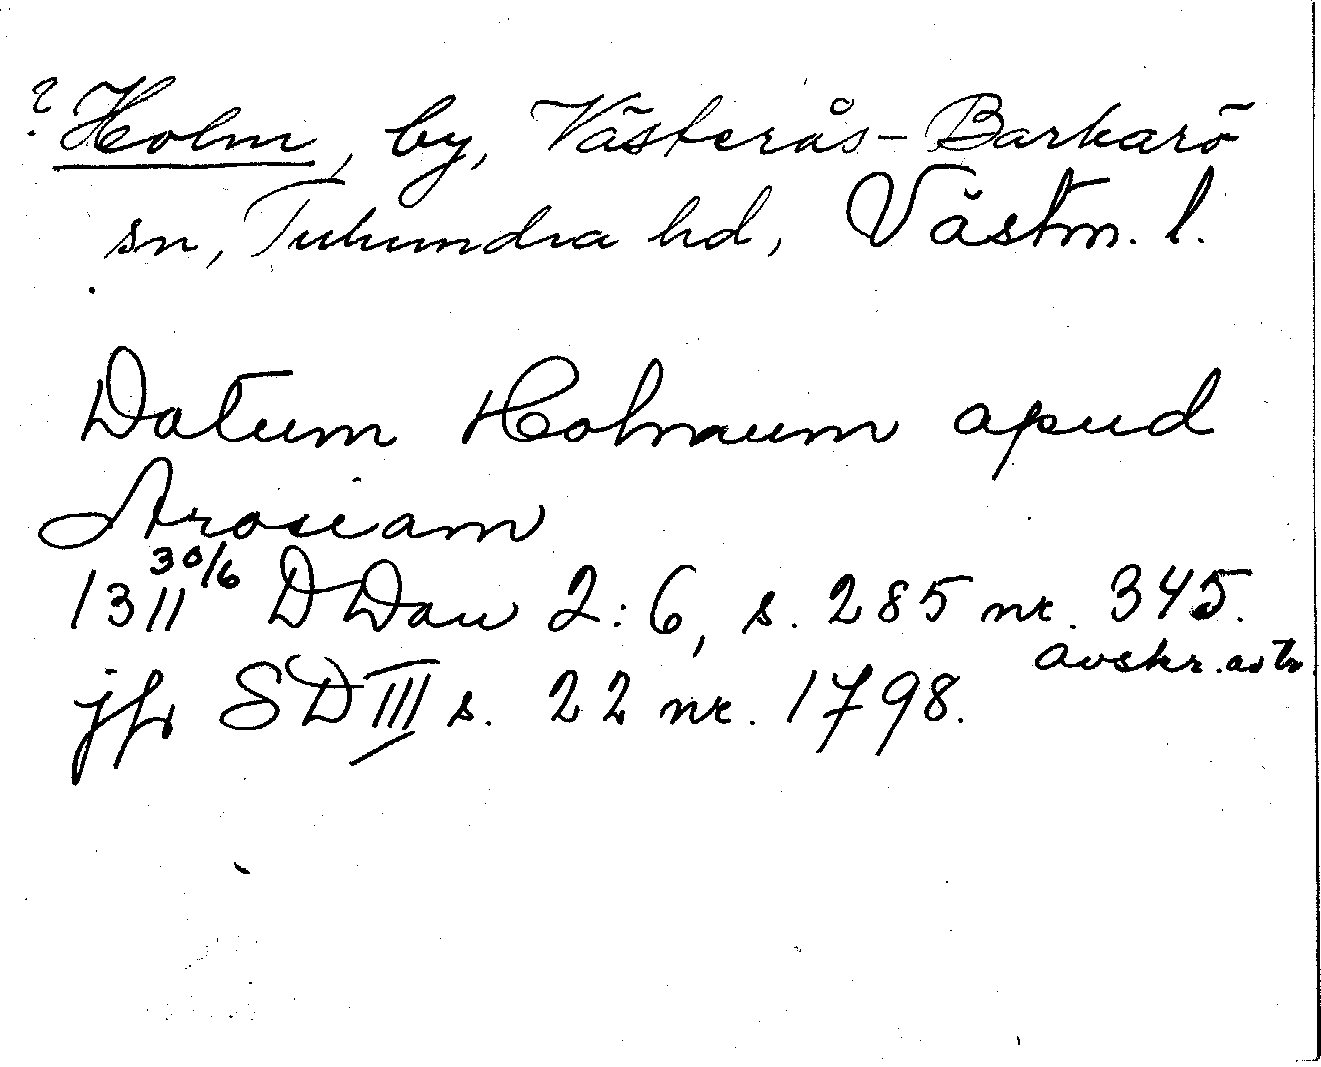 ? Holm, by, Västerås-Barkarö
sn, Tuhundra hd, Västm. l.
Datum Holmum apud
Arosiam
1311 30/6 DDan 2:6, s. 285 nr. 345.
avskr. av tr.
jfr SD III s. 22 nr. 1798.